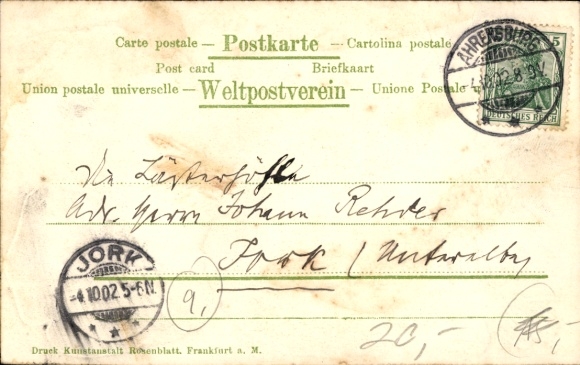 Carte postale — Postkarte — Cartolina postale
Post card Briefkaart
Union postale universelle — Weltpostverein — Unione Postale
AHRENSBURG
4.10.02.8-9V.
5
DEUTSCHES REICH
Die Lästerhöhle
Adr. Herrn Johann Rehder
Jork / Unterelbe
JORK
-4.10.02.5-6N.
9,
20,-
15,-
Druck Kunstanstalt Rosenblatt, Frankfurt a. M.